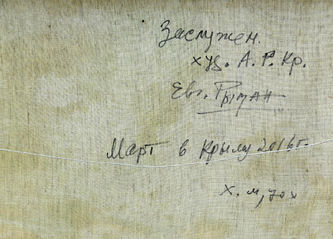 Заслужен.
худ. А. Р. Кр.
Евг.
Март в Крыму 2016г.
х. м,